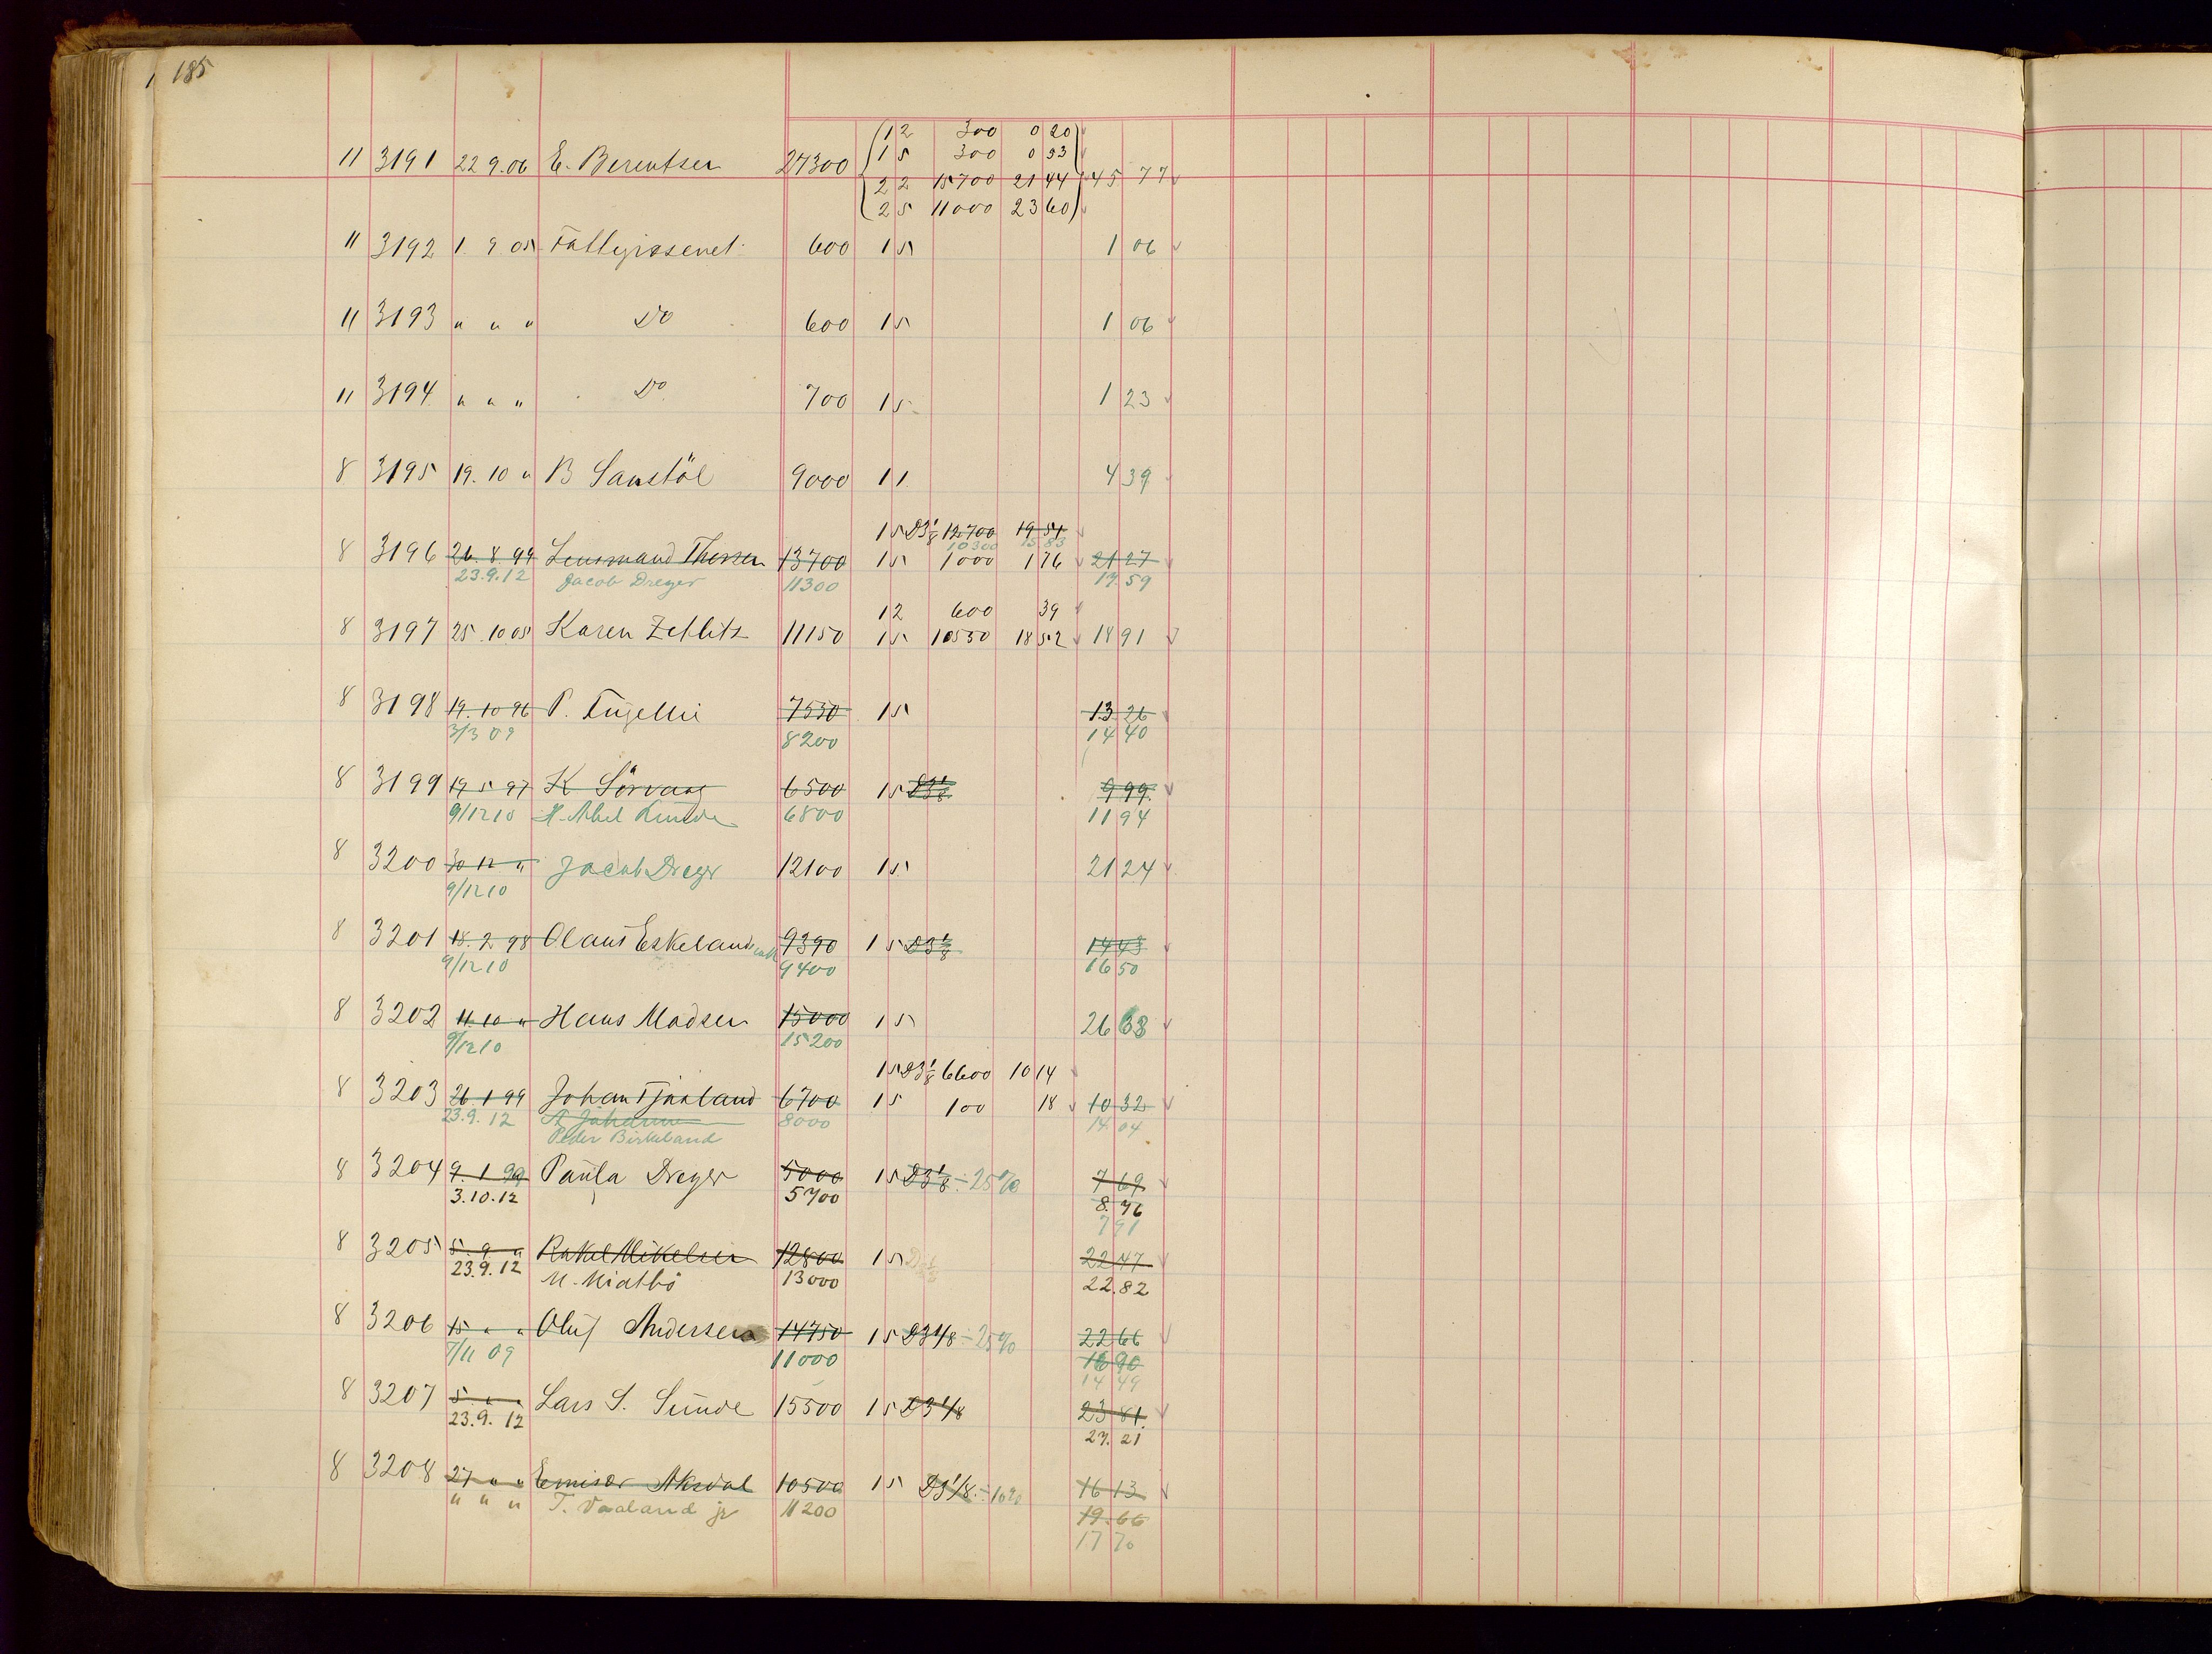 185
12 300 0 20
11 3191 22 9.06 E. Berentsen 27300 15 300 0 53
22 15700 21 44 45 77
25 11000 23 60
11 3192 1. 9 05 Fattigvæsenet 600 15 1 06
11 3193 " " " Do 600 15 1 06
11 3194 " " " Do 700 15 1 23
8 3195 19. 10 " B Sanstöl 9000 11 4 39
15 D3 1/8 12700 19 51
10300 15 83
8 3196 26. 8. 99 Lensmand Thorsen 13700 15 1000 1 76 21 27
23.9.12 Jacob Dreyer 11300 17.59
12 600 39
8 3197 25. 10 05 Karen Zetlitz 11150 15 10550 18 52 18 91
8 3198 19. 10 96 P. Fugellie 7550 15 13 26
3/3 09 8200 14 40
8 3199 19 5 97 K Sörvaag 6500 15 D3 1/8 9 99
9/12 10 H. Abel Lunde 6800 11 94
8 3200 30 12 " Jacob Dreyer 12100 15 21 24
9/12 10
8 3201 18. 2 98 Olaus Eskeland 9390 15 D3 1/8 14 43
9/12 10 9400 16 50
8 3202 11. 10 " Hans Madsen 15000 15 26 68
9/12 10 15200
15 D3 1/8 6600 10 14
8 3203 26 1 99 Johan Tjaaland 6700 15 100 18 10 32
23.9. 12 8000 14.04
Peder Birkeland
8 3204 9. 1 99 Paula Dreyer 5000 15 D3 1/8 ÷ 25% 7 69
3.10.12 5700 8.76
7 91
8 3205 5. 9 " Rakel Mikelsen 12800 15 22 47
23.9.12 M. Miatbö 13000 22.82
8 3206 15 " " Oluf Andersen 14750 15 D3 1/8 ÷ 25% 22 66
7/11 09 11000 16 90
14 49
8 3207 5 " " Lars S. Sunde 15500 15 D3 1/8 23 81
23.9. 12 27. 21
8 3208 27 " " Aksdal 10500 15 D3 1/8 ÷ 10% 16 13
" " " T. Vaaland jr 11200 19.66
17 70